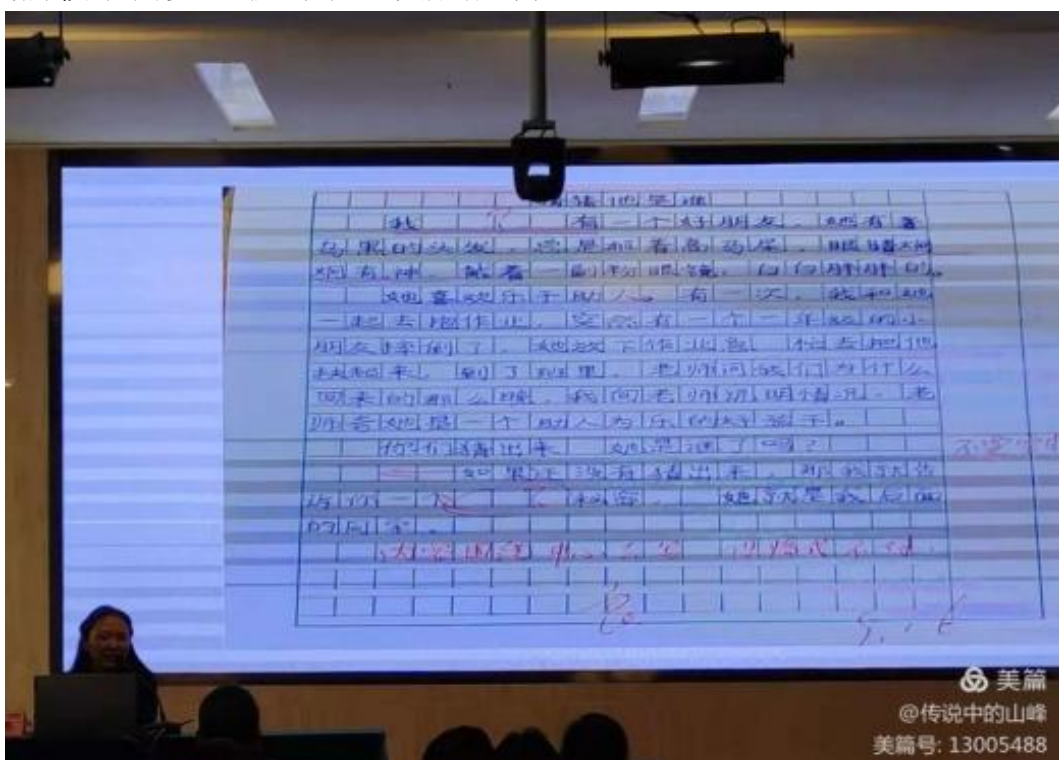 猜猜她是谁
我有一个好朋友，她有着
乌黑的头发，总是扎着高马尾，眼睛大而
有神，戴着一副粉眼镜，白白胖胖的。
她喜欢乐于助人。有一次，我和她
一起去抱作业，突然有一个一年级的小
朋友摔倒了，她放下作业，去把他
扶起来。到了班里，老师问我们为什么
回来的那么晚，我向老师说明情况，老
师夸她是一个助人为乐的好孩子。
你们猜出来她是谁了吗？
如果还没有猜出来，那我就告
诉你一个秘密，她就是我后面
的同学。
美篇
@传说中的山峰
美篇号: 13005488